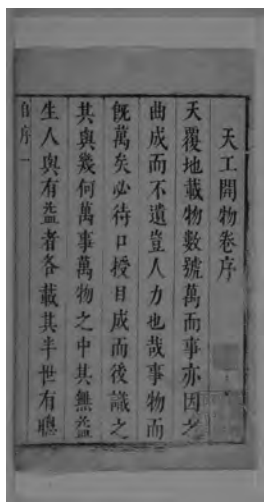 天工開物卷序
天覆地載物數號萬而事亦因之
曲成而不遺豈人力也哉事物而
既萬矣必待口授目成而後識之
其與幾何萬事萬物之中其無益
生人與有益者各載其半世有聰
自序 一